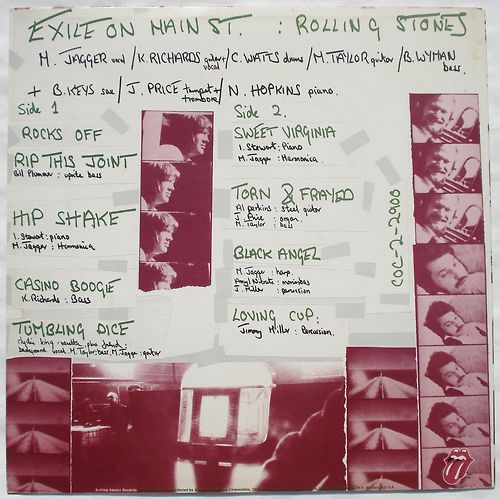 EXILE ON MAIN ST. : ROLLING STONES
M. JAGGER vocal/K. RICHARDS guitar+vocal/C. WATTS drums/M. TAYLOR guitar/B. WYMAN bass.
+ B. KEYS sax/J. PRICE trumpet+trombone/N. HOPKINS piano.
Side 1
ROCKS OFF
RIP THIS JOINT
Bill Plummer: uprite bass
HIP SHAKE
I. Stewart: piano
M. Jagger: Harmonica
CASINO BOOGIE
K. Richards: Bass
TUMBLING DICE
clydie king: vanetta, plus friend:
background vocal. M. Taylor: bass. M. Jagger: guitar
Side 2.
SWEET VIRGINIA
I. Stewart: Piano
M. Jagger: Harmonica.
TORN & FRAYED
Al perkins: steel guitar
J. Price: organ.
M. Taylor: bass
BLACK ANGEL
M. Jagger: harp.
Amyl Nitrate: marimbas
J. Miller: percussion
LOVING CUP:
Jimmy Miller: Percussion.
COC-2-2900